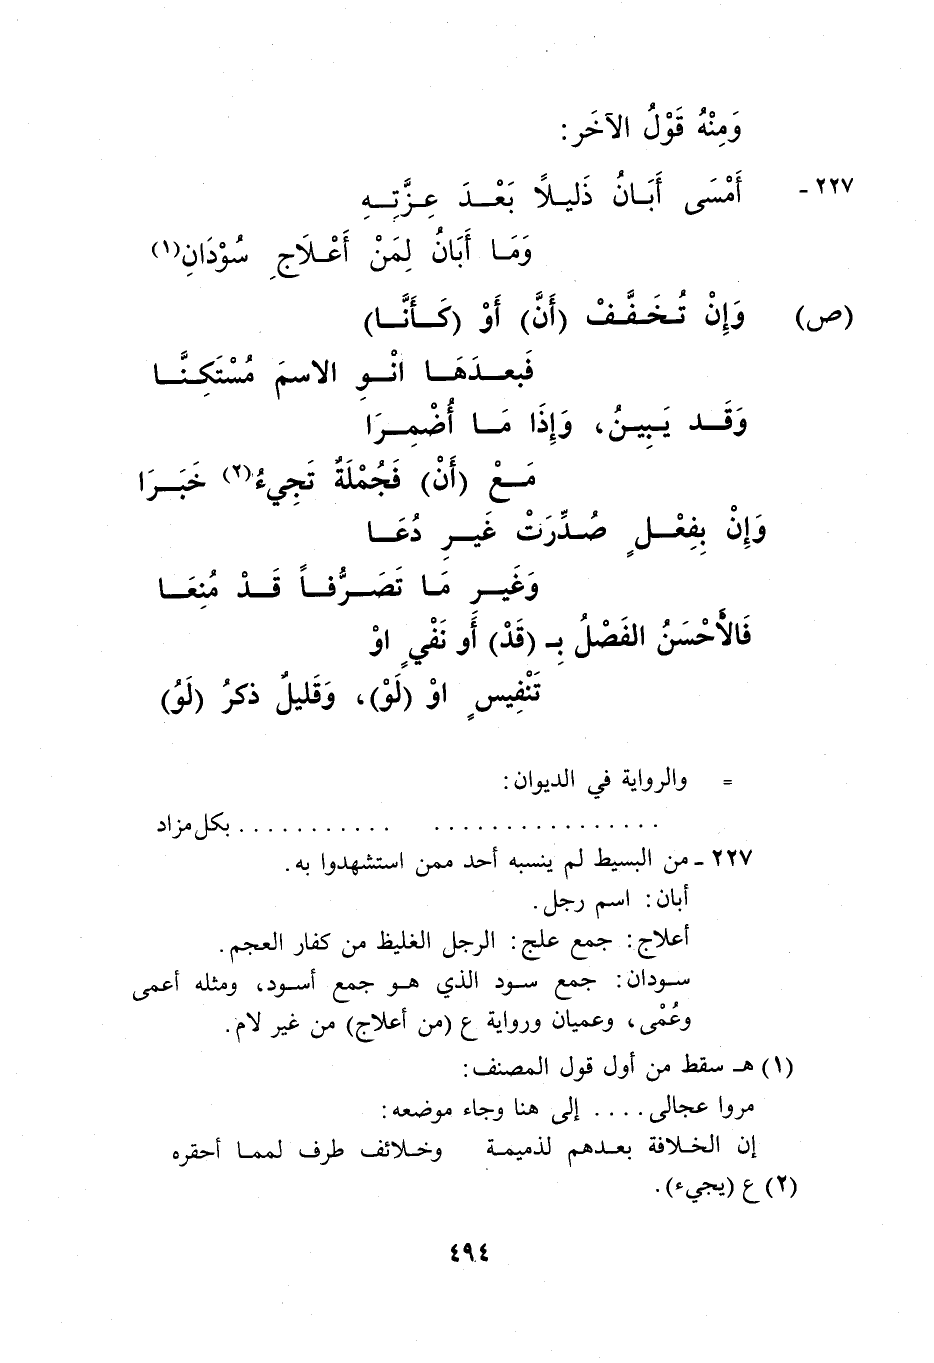 وَمِنْهُ قَوْلُ الآخَرِ:
٢٢٧- أَمْسَى أَبَانُ ذَلِيلاً بَعْدَ عِزَّتِهِ
وَمَا أَبَانُ لِمَنْ أَعْلَاجِ سُوْدَانِ(١)
(ص) وَإِنْ تُخَفَّفْ (أَنَّ) أَوْ (كَأَنَّا)
فَبعدَهَا انْوِ الاسمَ مُسْتَكِنَّا
وَقَد يَبِينُ، وَإِذَا مَا أُضْمِرَا
مَعْ (أَنْ) فَجُمْلَةٌ تَجِيءُ(٢) خَبَرَا
وَإِنْ بِفِعْلٍ صُدِّرَتْ غَيرِ دُعَا
وَغَيرِ مَا تَصَرُّفاً قَدْ مُنِعَا
فَالأَحْسَنُ الفَصْلُ بِـ (قَدْ) أَو نَفْيٍ اوْ
تَنْفِيسٍ اوْ (لَوْ)، وَقَلِيلٌ ذكرُ (لَوْ)
= والرواية في الديوان:
................ ........... بكل مزاد
٢٢٧ - من البسيط لم ينسبه أحد ممن استشهدوا به.
أبان: اسم رجل.
أعلاج: جمع علج: الرجل الغليظ من كفار العجم.
سودان: جمع سود الذي هو جمع أسود، ومثله أعمى
وعُمْى، وعميان ورواية ع (من أعلاج) من غير لام.
(١) هـ سقط من أول قول المصنف:
مروا عجالى.... إلى هنا وجاء موضعه:
إن الخلافة بعدهم لذميمة وخلائف طرف لمما أحقره
(٢) ع (يجيء).
٤٩٤